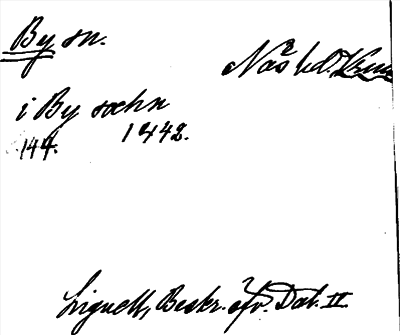 By sn.
Näs hd.
i By sochn
144. 1442.
Lignell, Beskr. öfv. Dal. II.